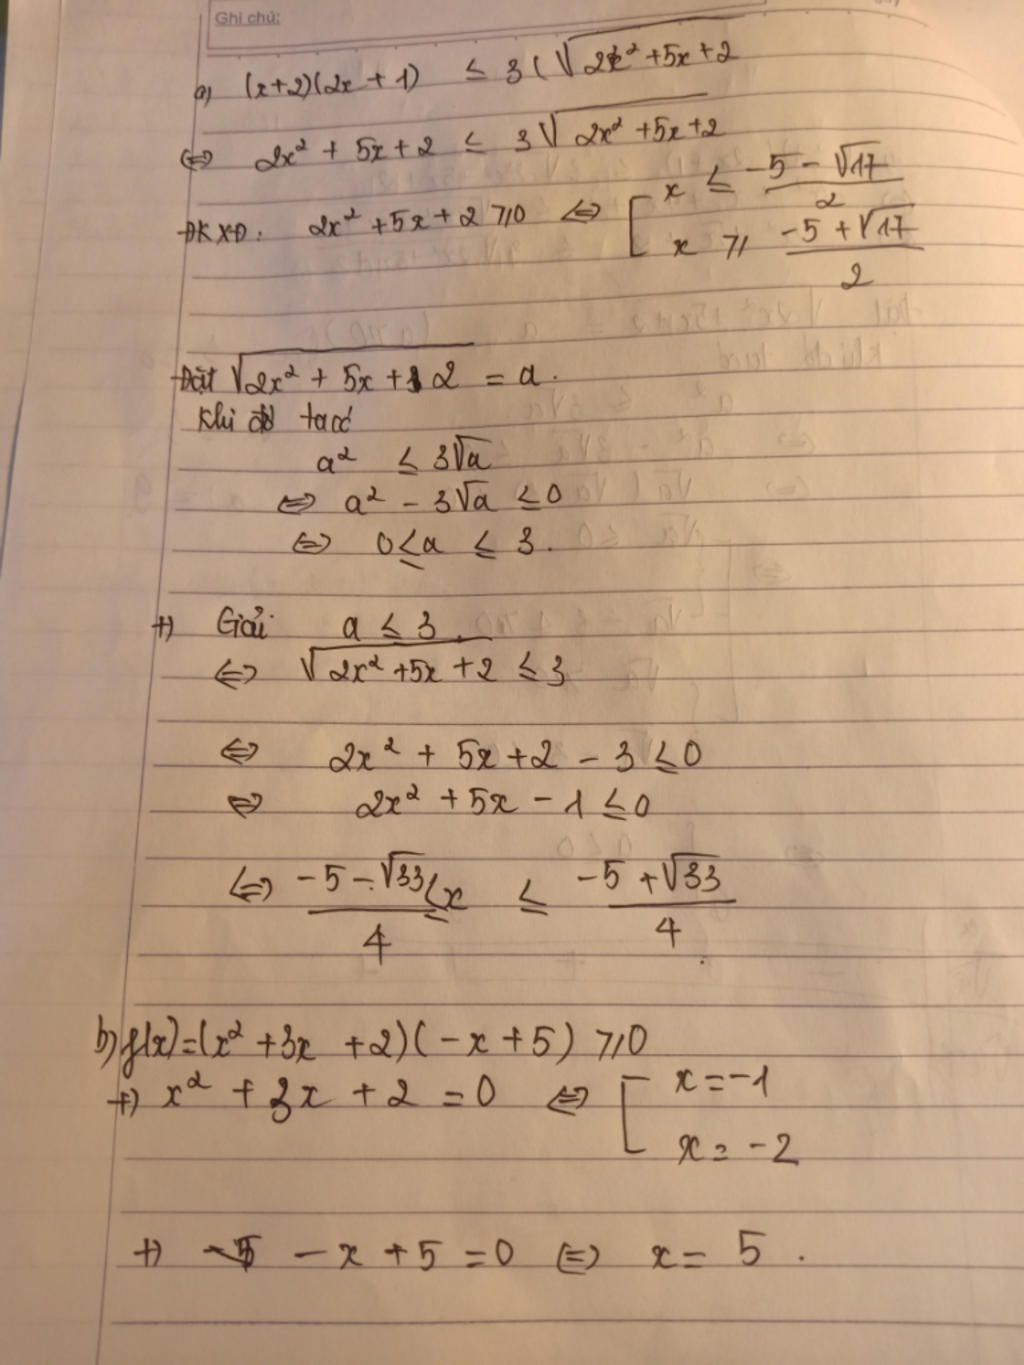 Ghi chú:
a) (x+2)(2x+1) ≤ 3(√2x²+5x+2
⇔ 2x² + 5x + 2 ≤ 3√2x²+5x+2
ĐKXĐ: 2x²+5x+2 ≥ 0 ⇔ [ x ≤ (-5-√17)/2
x ≥ (-5+√17)/2
Đặt √2x² + 5x + 2 = a.
Khi đó ta có
a² ≤ 3√a
⇔ a² - 3√a ≤ 0
⇔ 0 ≤ a ≤ 3.
+) Giải a ≤ 3.
⇔ √2x²+5x+2 ≤ 3
⇔ 2x² + 5x + 2 - 3 ≤ 0
⇔ 2x² + 5x - 1 ≤ 0
⇔ (-5-√33)/4 ≤ x ≤ (-5+√33)/4.
b) f(x)=(x²+3x+2)(-x+5) ≥ 0
+) x² + 3x + 2 = 0 ⇔ [ x = -1
x = -2
+) -x + 5 = 0 ⇔ x = 5.